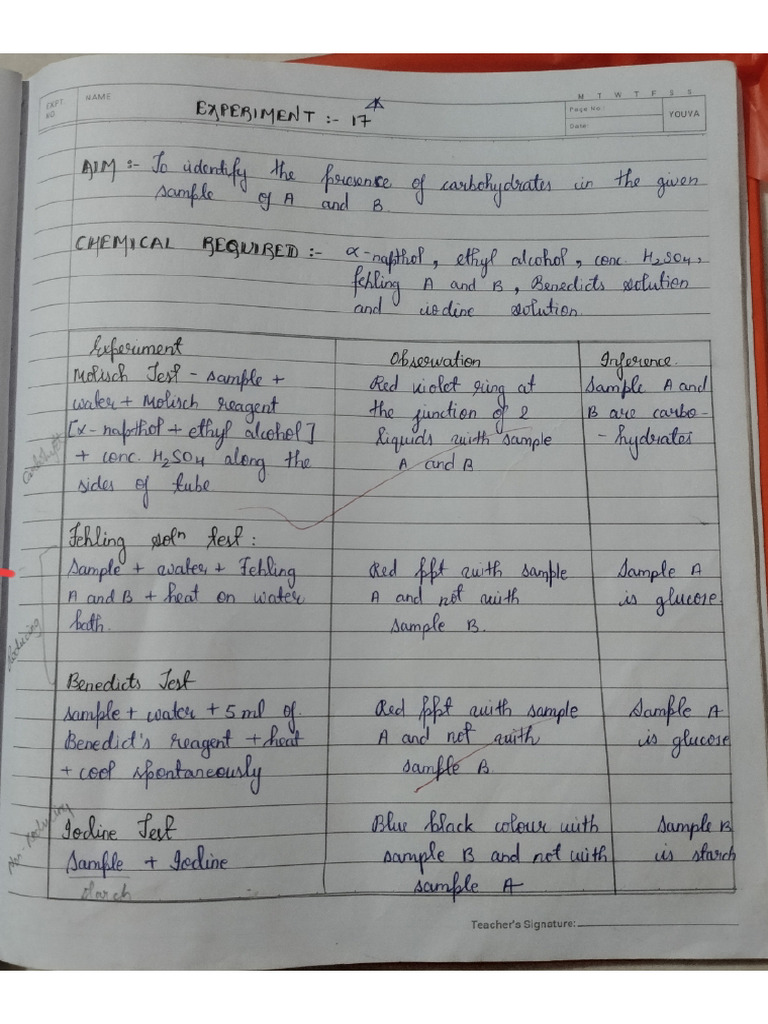 EXPT. NO.
NAME
M T W T F S S
Page No.:
Date:
YOUVA
EXPERIMENT :- 17
AIM :- To identify the presence of carbohydrates in the given
sample of A and B.
CHEMICAL REQUIRED :- α-napthol, ethyl alcohol, conc. H₂SO₄,
fehling A and B, Benedicts solution
and iodine solution.
Experiment
Observation
Inference.
Molisch Test - sample +
water + Molisch reagent
[α-napthol + ethyl alcohol]
+ conc. H₂SO₄ along the
sides of tube.
Red violet ring at
the junction of 2
liquids with sample
A and B
Sample A and
B are carbo-
-hydrates
Fehling solⁿ test :
Sample + water + Fehling
A and B + heat on water
bath.
Red ppt with sample
A and not with
sample B.
Sample A
is glucose
Reducing
Benedicts Test
sample + water + 5 ml of
Benedict's reagent + heat
+ cool spontaneously
Red ppt with sample
A and not with
sample B.
Sample A
is glucose
Iodine Test
Sample + Iodine
starch
Blue black colour with
sample B and not with
sample A
Sample B
is starch
Teacher's Signature: